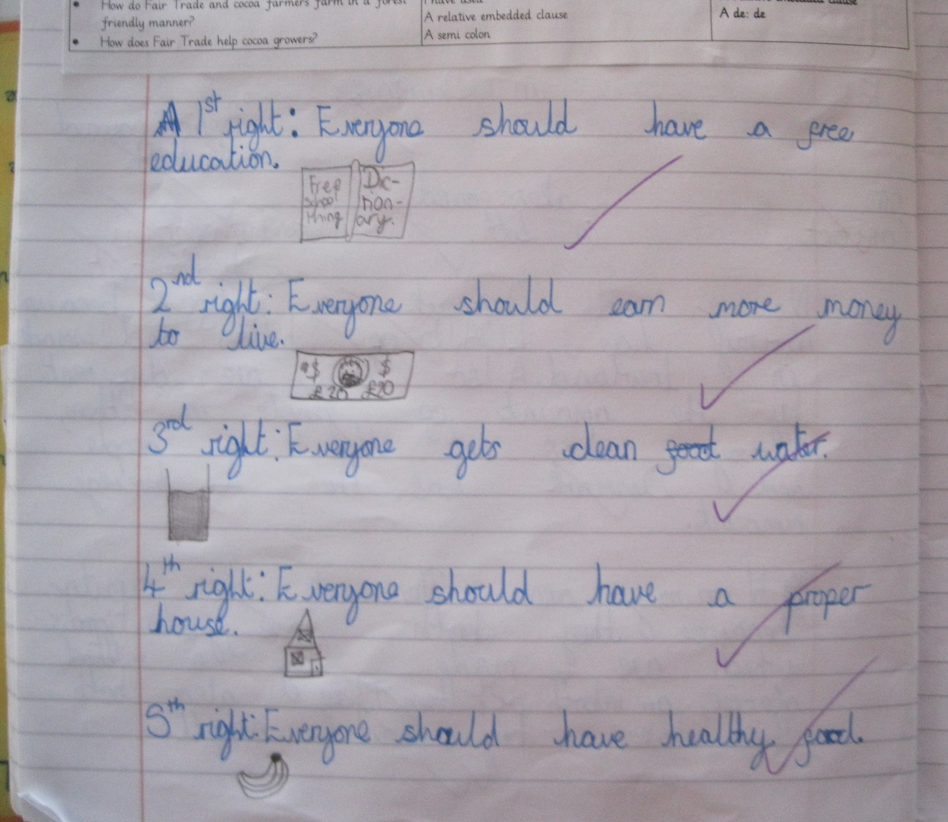 How do Fair Trade and cocoa farmers farm in a forest
friendly manner?
How does Fair Trade help cocoa growers?
I have used
A relative embedded clause
A semi colon
clause
A de: de
1st right: Everyone should have a free
education.
Free school thing
Dic-
tion-
ary.
2nd right: Everyone should earn more money
to live.
$ $
£20 £20
3rd right: Everyone gets clean food water.
4th right: Everyone should have a proper
house.
5th right: Everyone should have healthy food.